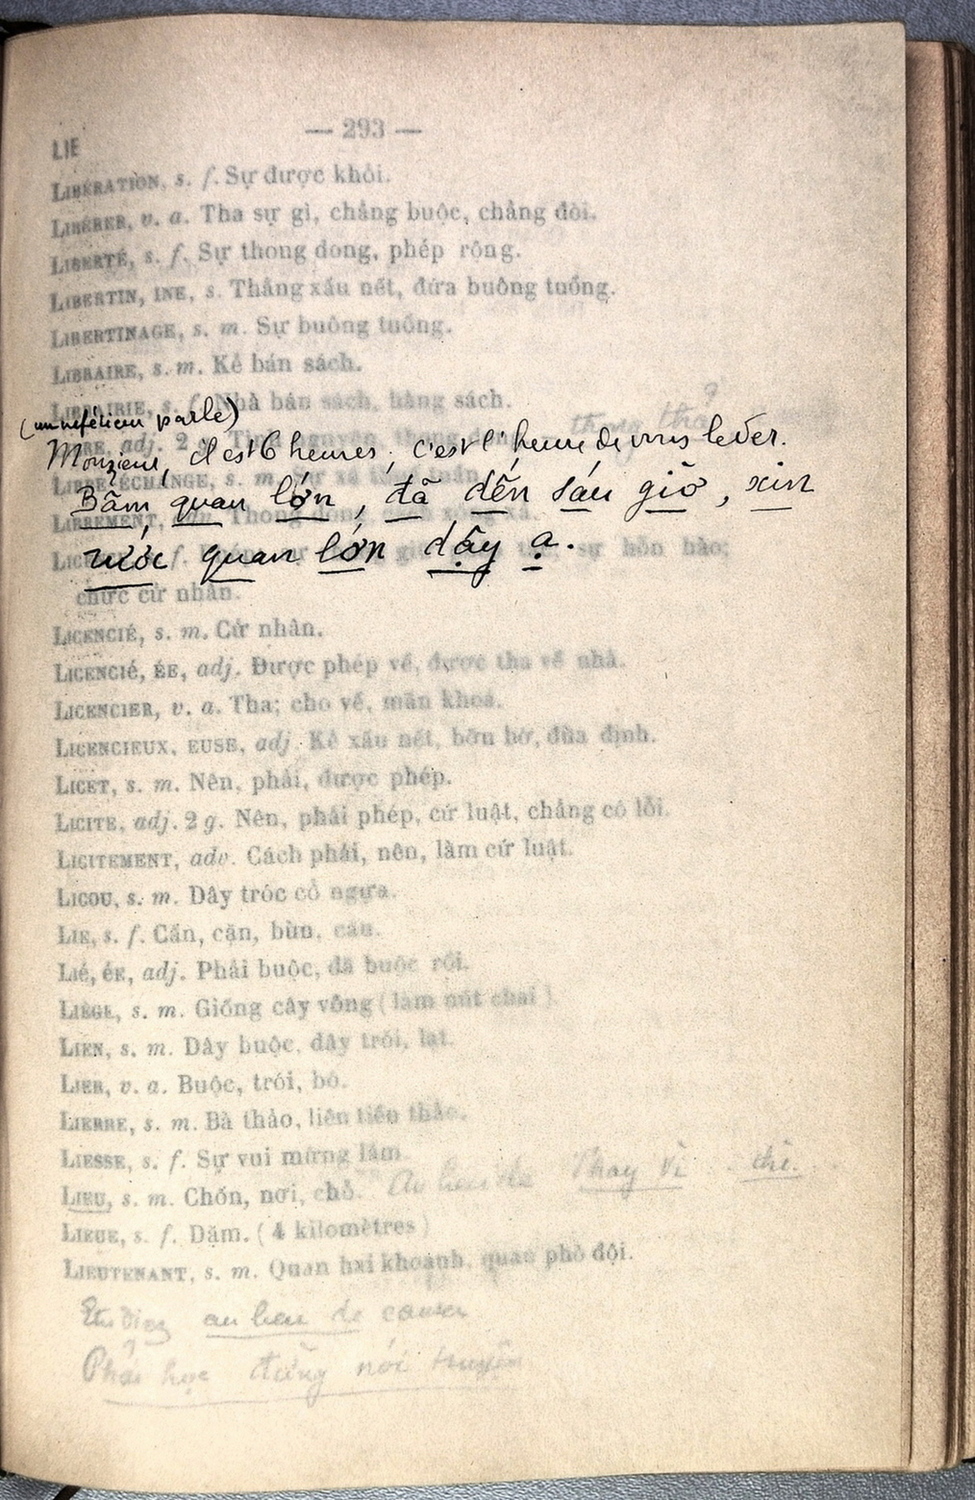 — 293 —
LIE
LIBÉRATION, s. f. Sự được khỏi.
LIBÉRER, v. a. Tha sự gì, chẳng buộc, chẳng đòi.
LIBERTÉ, s. f. Sự thong dong, phép rộng.
LIBERTIN, INE, s. Thằng xấu nết, đứa buông tuồng.
LIBERTINAGE, s. m. Sự buông tuồng.
LIBRAIRE, s. m. Kẻ bán sách.
LIBRAIRIE, s. f. Nhà bán sách, hàng sách.
(un inférieur parle)
thong thả
LIBRE, adj. 2
Monsieur, il est 6 heures, c'est l'heure de vous lever.
LIBRE ÉCHANGE, s. m.
Bẩm quan lớn, đã đến sáu giờ, xin
LIBREMENT, Thong dong,
rước quan lớn dậy ạ.
f. sự hỗn hào;
chức cử nhân.
LICENCIÉ, s. m. Cử nhân.
LICENCIÉ, ÉE, adj. Được phép về, được tha về nhà.
LICENCIER, v. a. Tha; cho về, mãn khoá.
LICENCIEUX, EUSE, adj. Kẻ xấu nết, bờn bờ, đùa định.
LICET, s. m. Nên, phải, được phép.
LICITE, adj. 2 g. Nên, phải phép, cứ luật, chẳng có lỗi.
LICITEMENT, adv. Cách phải, nên, làm cứ luật.
LICOU, s. m. Dây tróc cổ ngựa.
LIE, s. f. Cấn, cặn, bùn, cáu.
LIÉ, ÉE, adj. Phải buộc, đã buộc rồi.
LIÈGE, s. m. Giống cây vông (làm nút chai).
LIEN, s. m. Dây buộc, dây trói, lạt.
LIER, v. a. Buộc, trói, bó.
LIERRE, s. m. Bà thảo, liên tiễu thảo.
LIESSE, s. f. Sự vui mừng lắm.
LIEU, s. m. Chốn, nơi, chỗ. Au lieu de Thay vì thì.
LIEUE, s. f. Dặm. (4 kilomètres)
LIEUTENANT, s. m. Quan hai khoanh, quan phó đội.
Etudiez au lieu de causer
Phải học đừng nói truyện